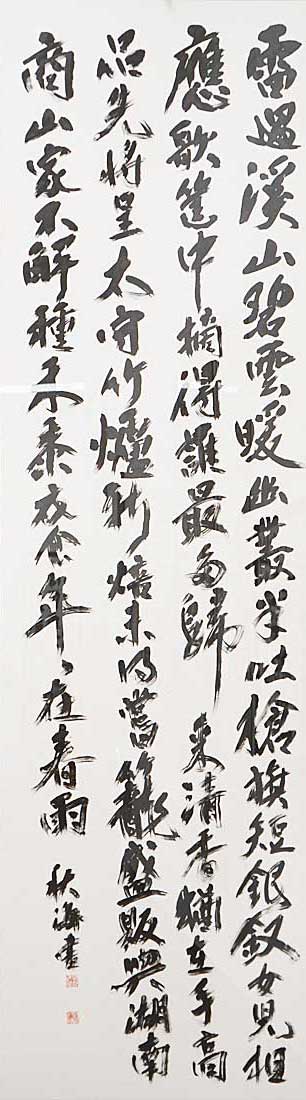 雷過溪山碧雲暖幽叢半吐槍旗短銀釵女兒相
應歌筐中摘得誰最多歸来清香猶在手高
品先將呈太守竹爐新焙未得嘗籠盛販與湖南
商山家不解種禾黍衣食年々在春雨
書